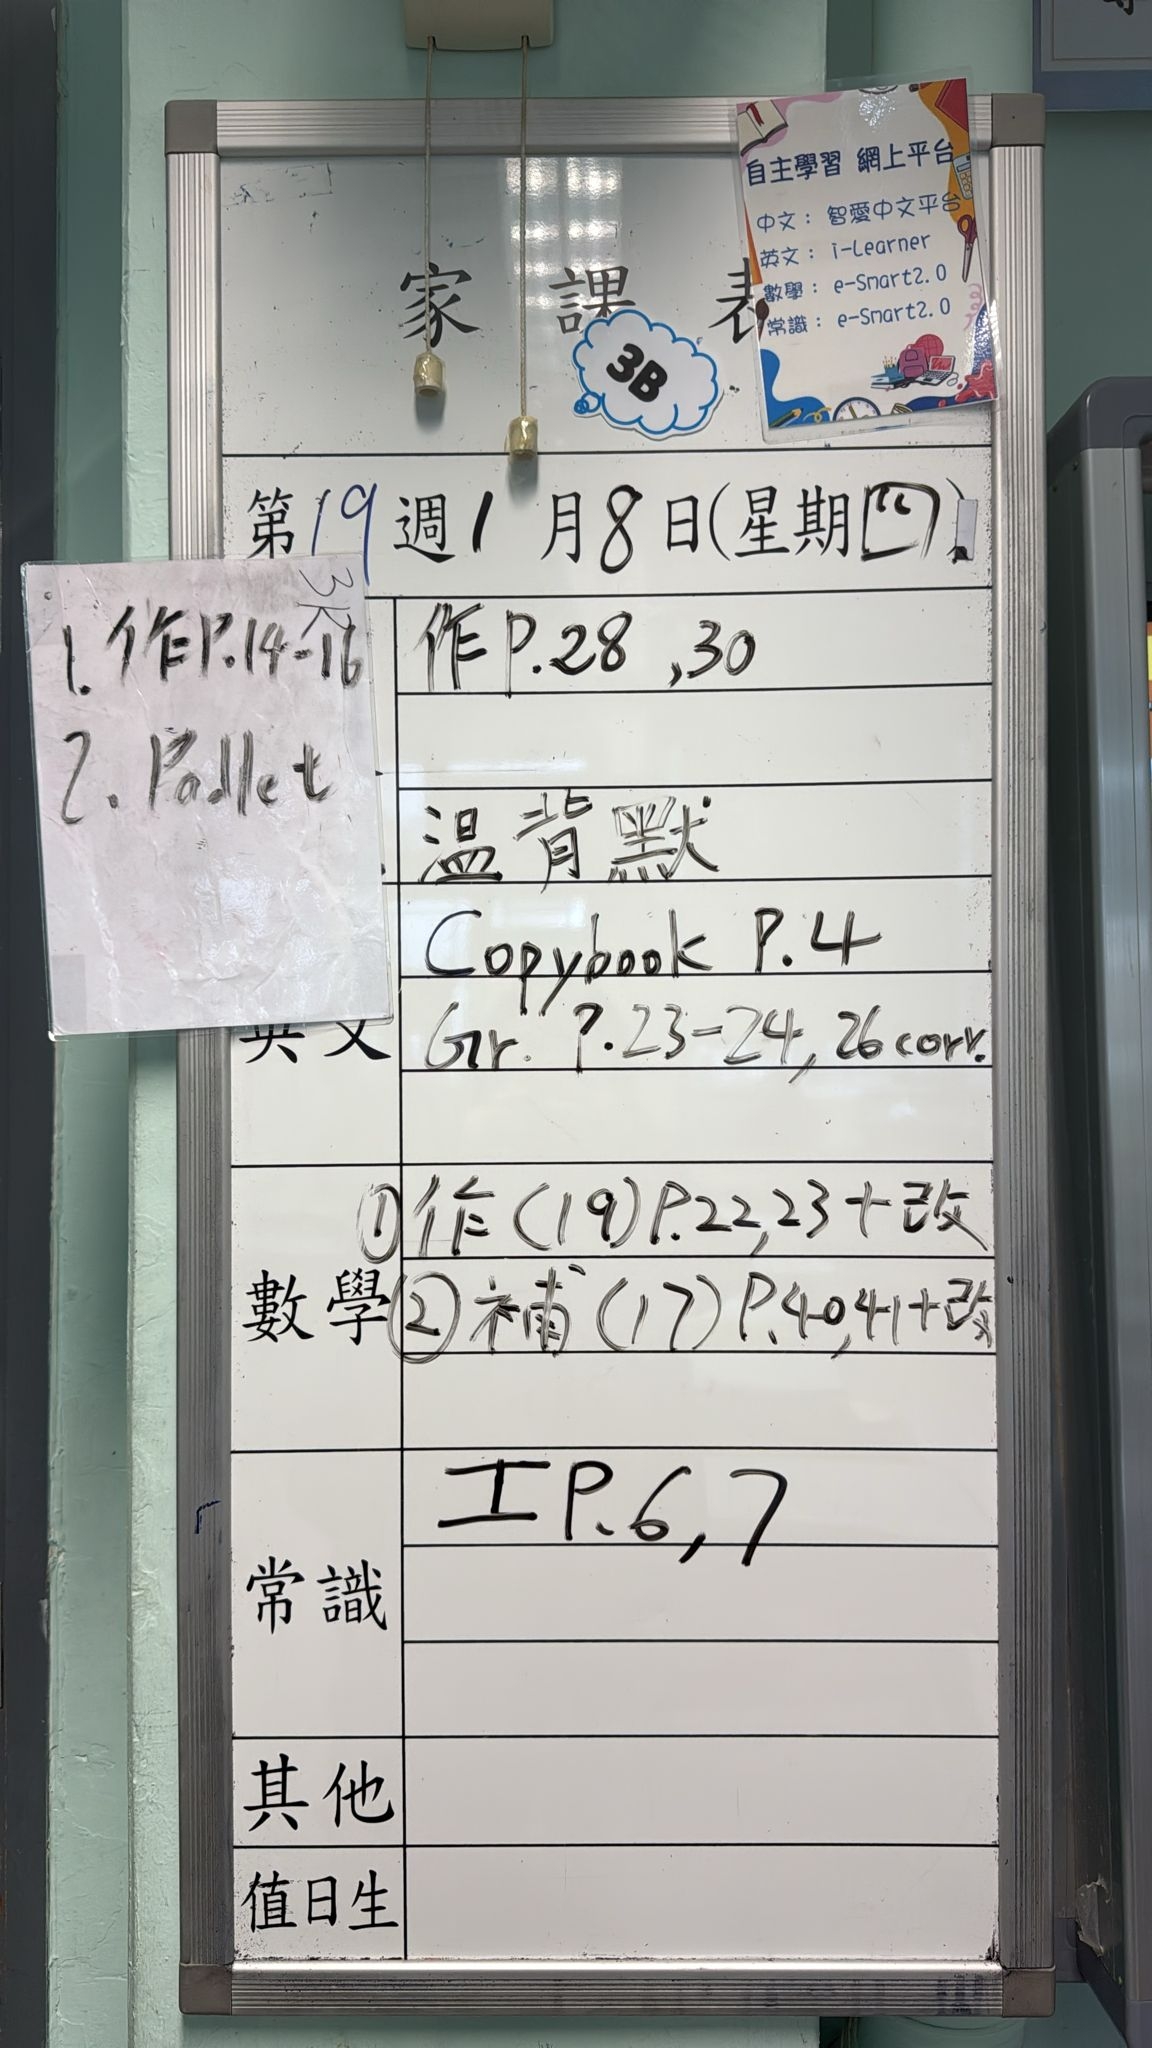 自主學習 網上平台
中文：智愛中文平台
英文：i-Learner
數學：e-Smart2.0
常識：e-Smart2.0
家課表
3B
第19週1月8日(星期四)
1. 作P.14-16
2. Padlet
作P.28,30
溫背默
英文
Copybook P.4
Gr. P.23-24, 26 corr.
數學
①作(19)P.22,23+改
②補(17)P.40,41+改
常識
工P.6,7
其他
值日生